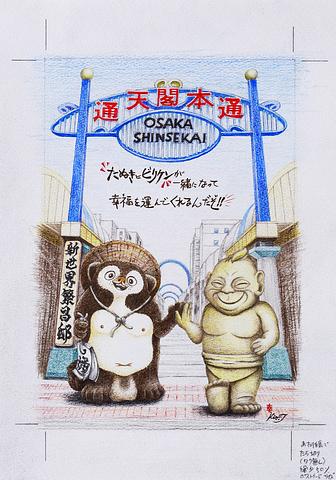 通天閣本通
OSAKA
SHINSEKAI
たぬきとビリケンが
一緒になって
幸福を運んでくれるんだぞ!!
新世界繁昌邸
たち切り
(フチ無し)